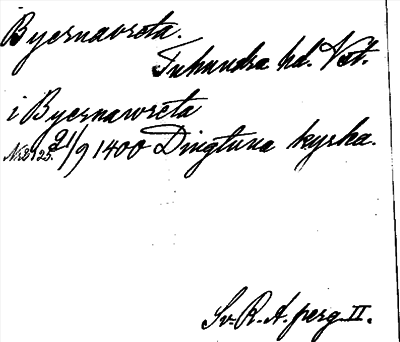 Byernavreta.
Tuhundra hd. Vst.
i Byernawreta
Nr 2925. 21/9 1400 Dingtuna kyrka.
Sv. R. A. perg. II.